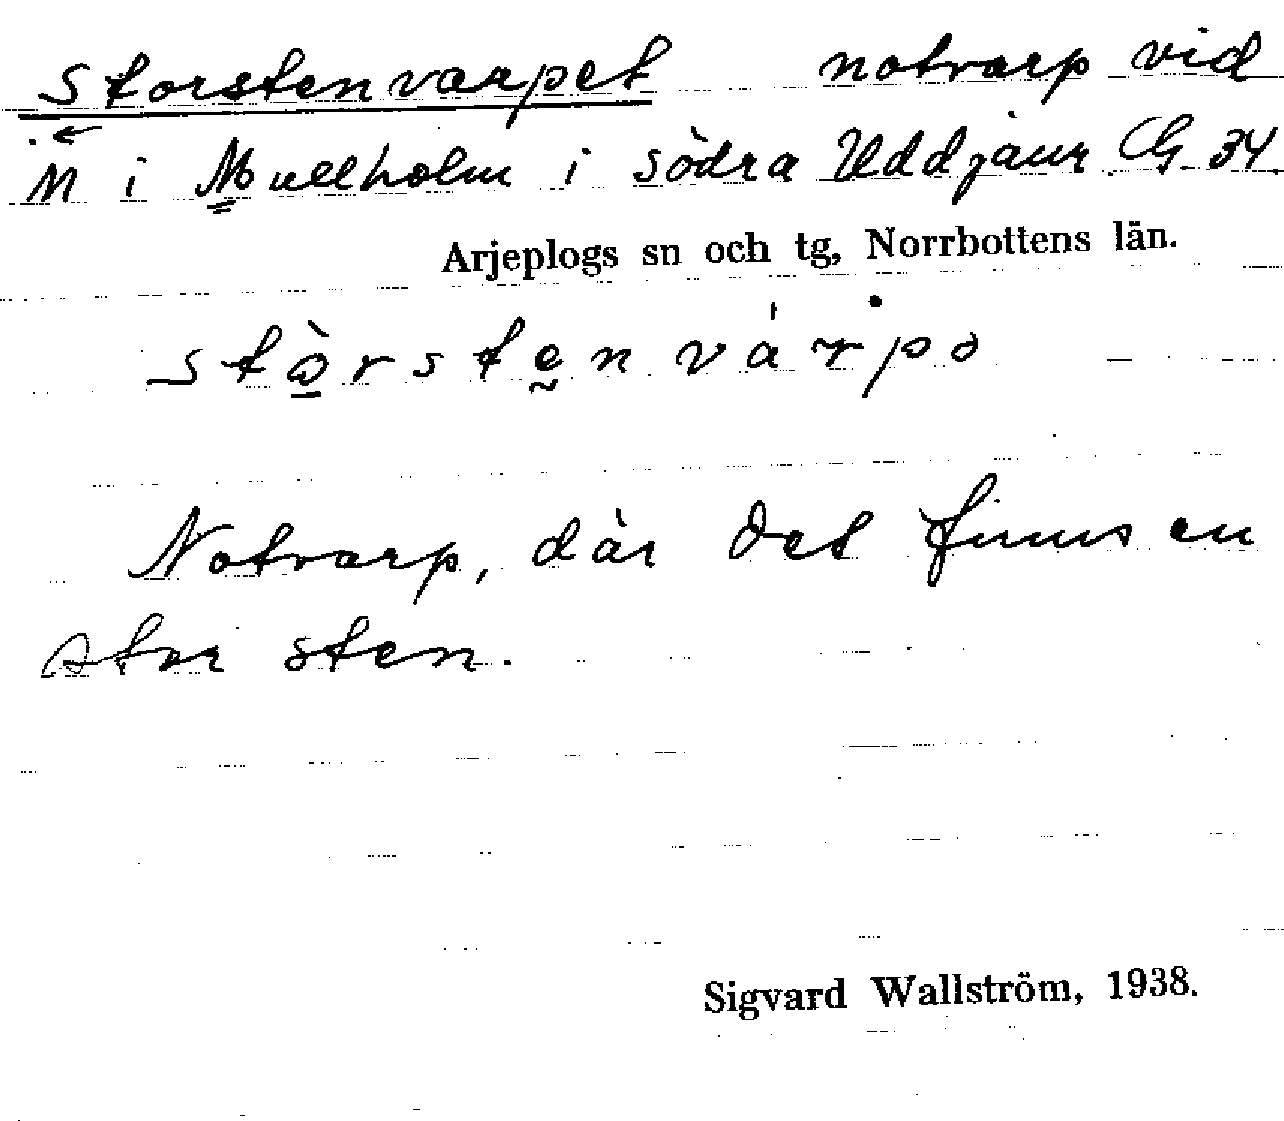 Storstenvarpet notvarp vid
M i Mullholm i södra Uddjaur G 34
Arjeplogs sn och tg, Norrbottens län.
Notvarp, där det finns en
stor sten.
Sigvard Wallström, 1938.